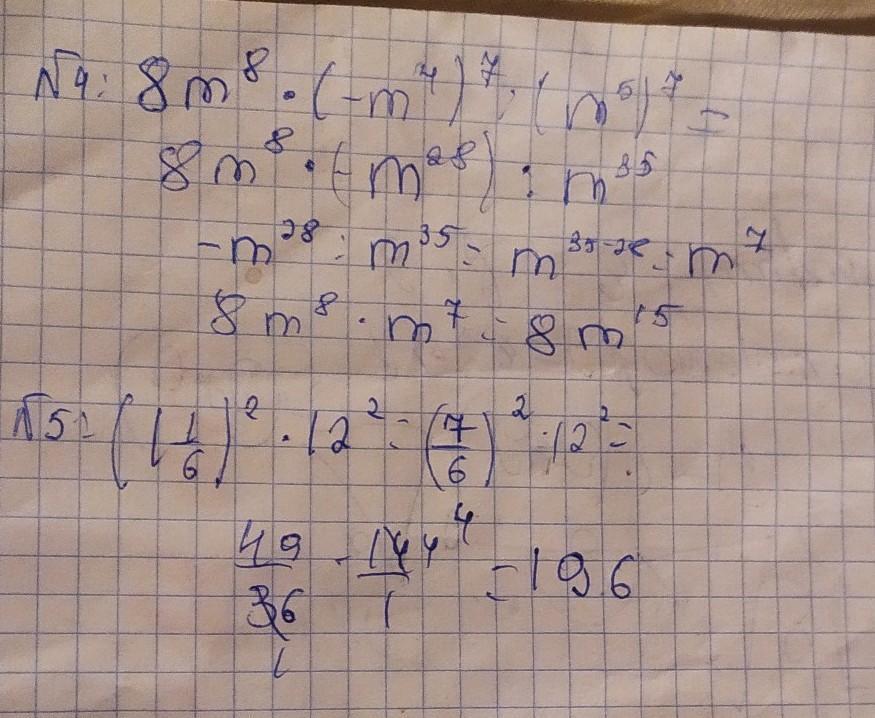 №4: 8m⁸ · (-m⁴)⁷ : (m⁵)⁷ =
8m⁸ · (-m²⁸) : m³⁵
-m²⁸ : m³⁵ = m³⁵⁻²⁸ = m⁷
8m⁸ · m⁷ = 8m¹⁵
№5: (1 1/6)² · 12² = (7/6)² · 12² =
49/36 · 144/1 = 196
4
1